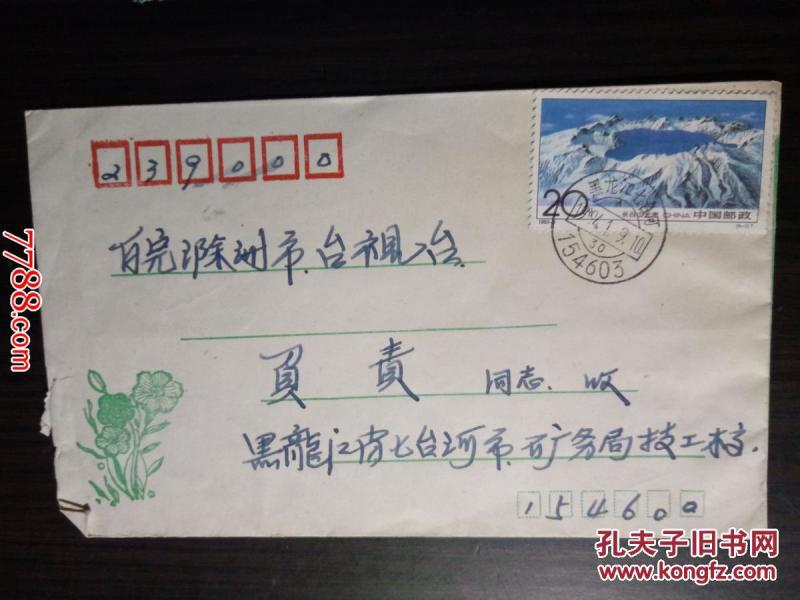 239000
20
CHINA 中国邮政
黑龙江
1994.1.9.10
30
154603
皖滁州市.台祖冶.
負責 同志.收
黑龍江省七台河市.矿务局技工校.
154600
7788.com
孔夫子旧书网
www.kongfz.com